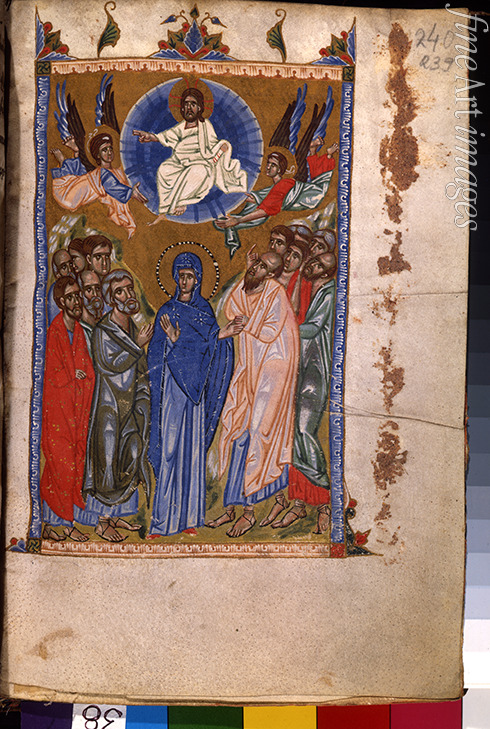 240
239
fine Art images
38